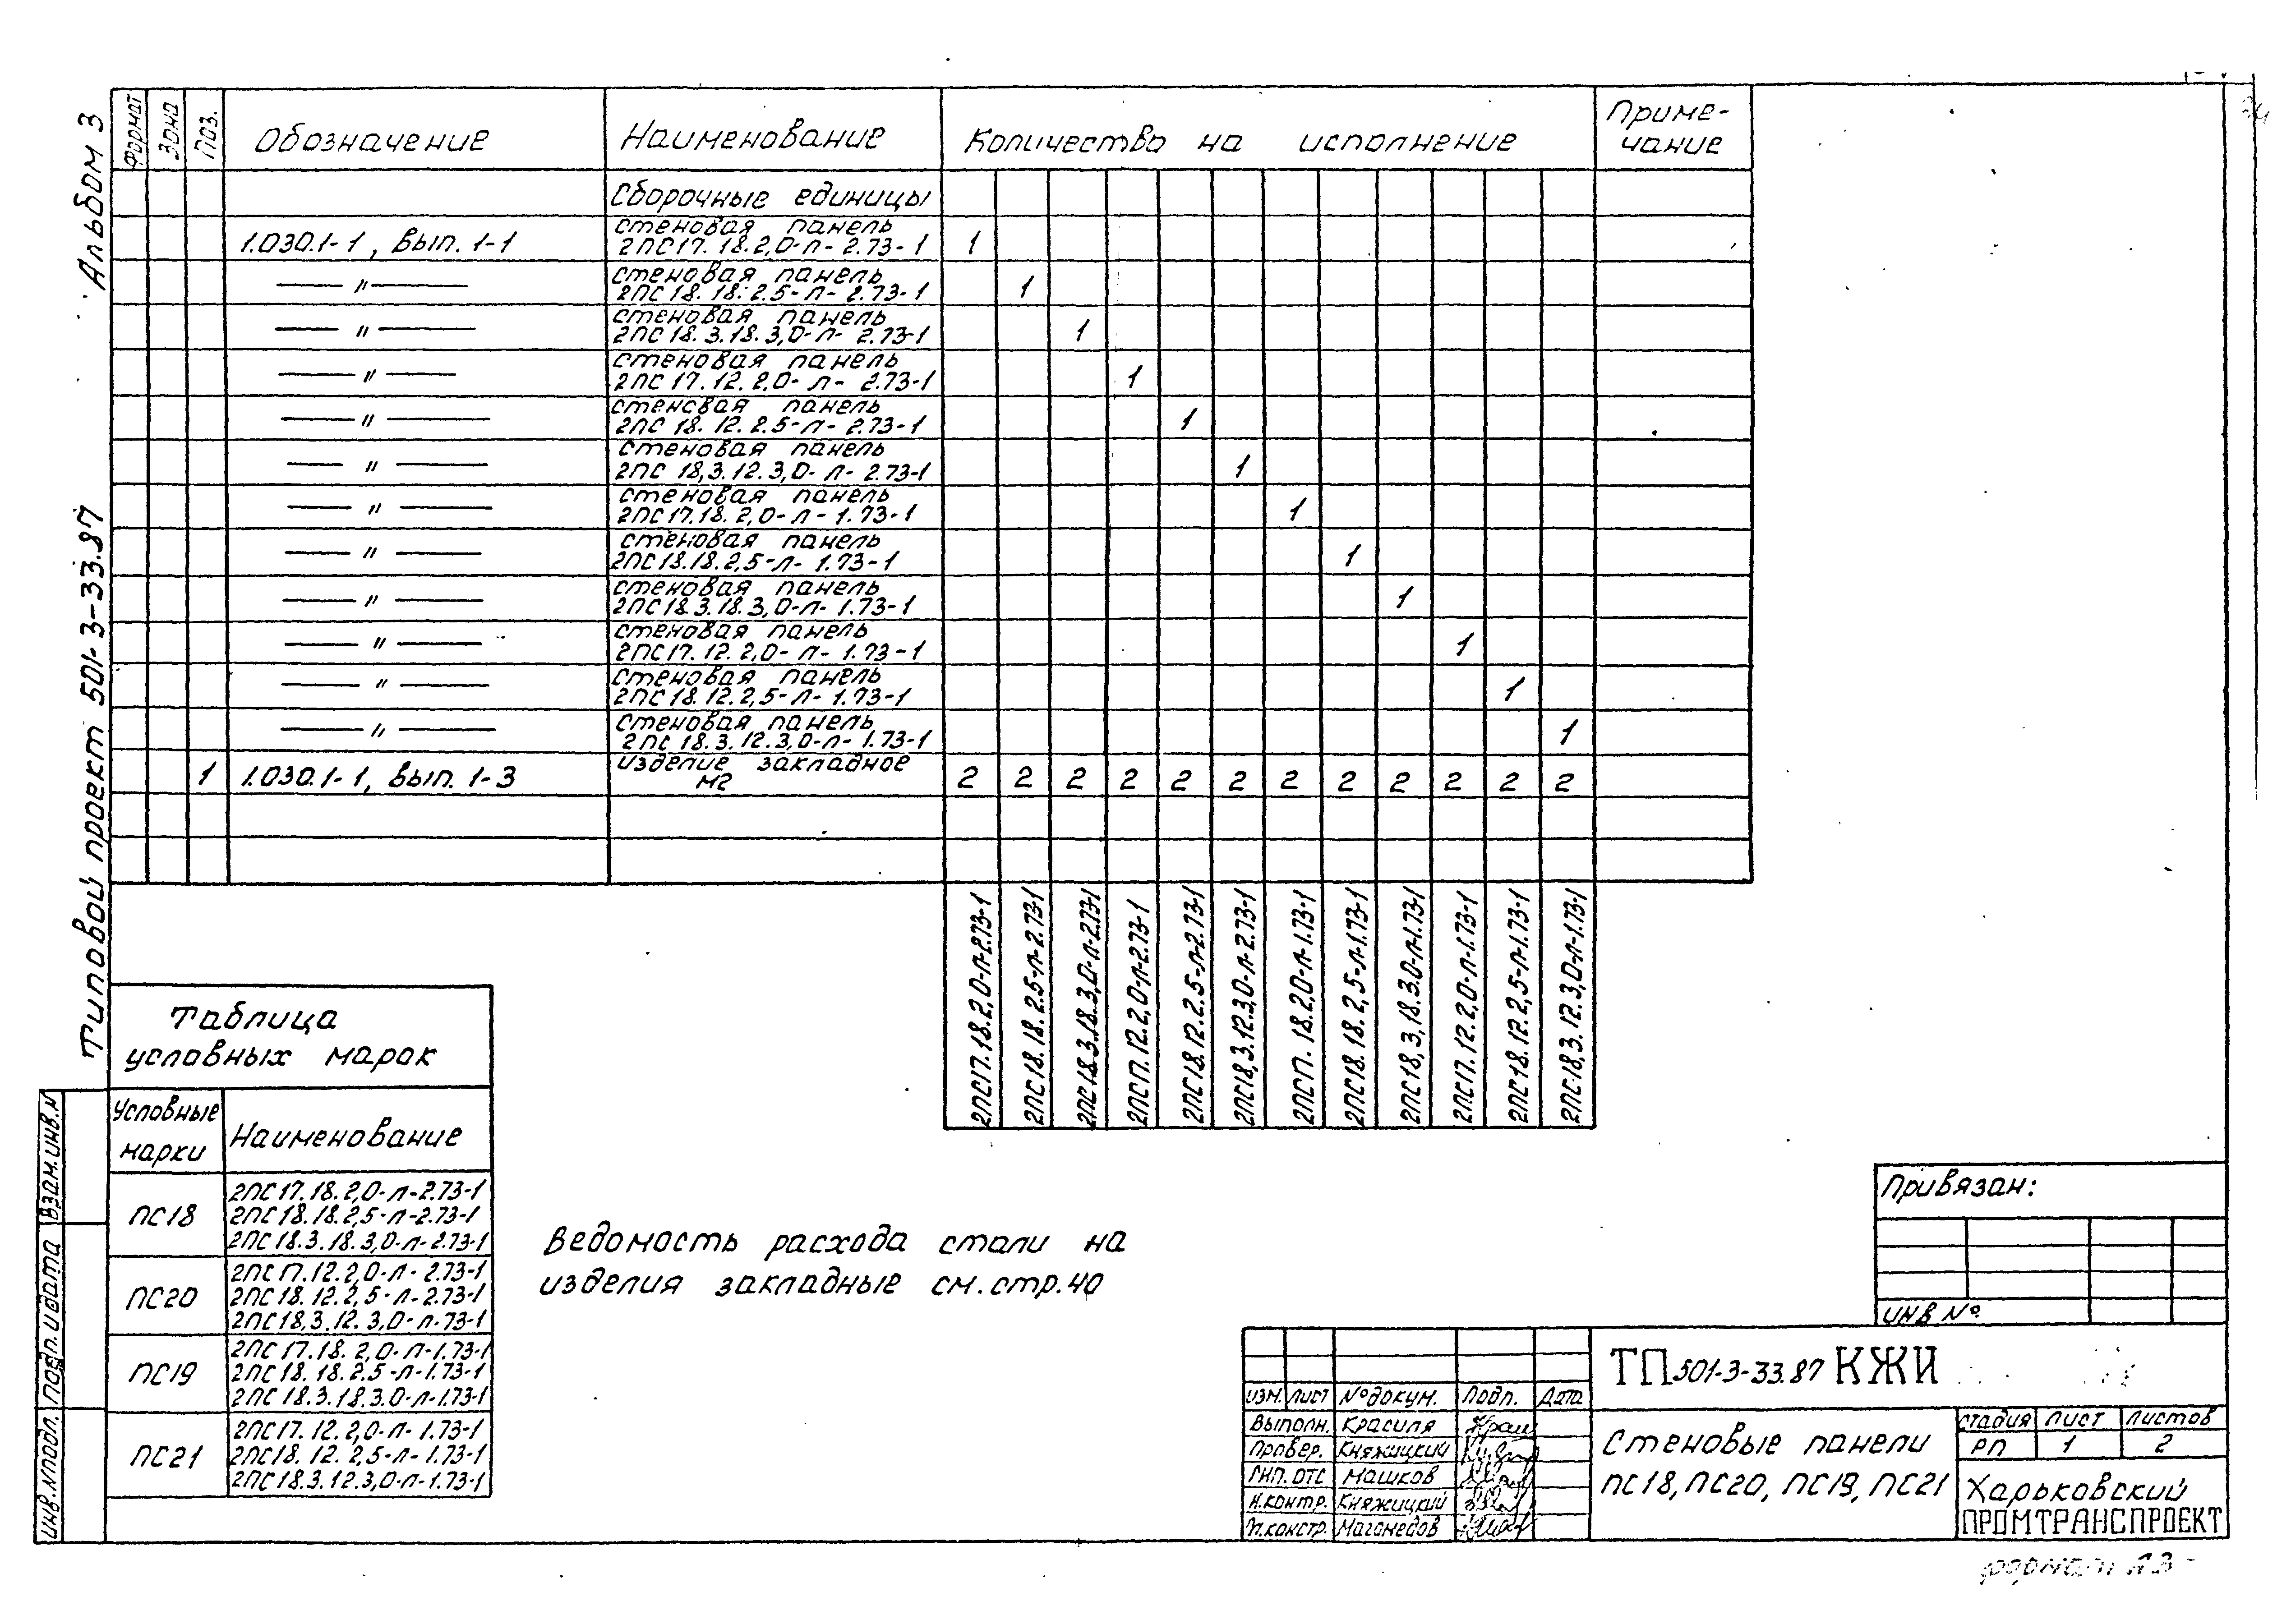 Альбом 3
Типовой проект 501-3-33.87
Формат Зона Поз. Обозначение Наименование Количество на исполнение Приме-
чание
Сборочные единицы
1.030.1-1, вып. 1-1 стеновая панель
2ПС17.18.2,0-л-2.73-1 1
— " — стеновая панель
2ПС18.18.2.5-л-2.73-1 1
— " — стеновая панель
2ПС18.3.18.3,0-л-2.73-1 1
— " — стеновая панель
2ПС17.12.2,0-л-2.73-1 1
— " — стеновая панель
2ПС18.12.2.5-л-2.73-1 1
— " — стеновая панель
2ПС18,3.12.3,0-л-2.73-1 1
— " — стеновая панель
2ПС17.18.2,0-л-1.73-1 1
— " — стеновая панель
2ПС18.18.2,5-л-1.73-1 1
— " — стеновая панель
2ПС18.3.18.3,0-л-1.73-1 1
— " — стеновая панель
2ПС17.12.2,0-л-1.73-1 1
— " — стеновая панель
2ПС18.12.2,5-л-1.73-1 1
— " — стеновая панель
2ПС18.3.12.3,0-л-1.73-1 1
1 1.030.1-1, вып. 1-3 изделие закладное
М2 2 2 2 2 2 2 2 2 2 2 2 2
2ПС17.18.2,0-л-2.73-1
2ПС18.18.2.5-л-2.73-1
2ПС18.3.18.3,0-л-2.73-1
2ПС17.12.2,0-л-2.73-1
2ПС18.12.2.5-л-2.73-1
2ПС18,3.12.3,0-л-2.73-1
2ПС17.18.2,0-л-1.73-1
2ПС18.18.2,5-л-1.73-1
2ПС18,3,18.3.0-л-1.73-1
2ПС17.12.2,0-л-1.73-1
2ПС18.12.2,5-л-1.73-1
2ПС18,3.12.3,0-л-1.73-1
Таблица
условных марок
Условные
марки Наименование
ПС18
2ПС17.18.2,0-л-2.73-1
2ПС18.18.2,5-л-2.73-1
2ПС18.3.18.3,0-л-2.73-1
ПС20
2ПС17.12.2,0-л-2.73-1
2ПС18.12.2,5-л-2.73-1
2ПС18,3.12.3,0-л-73-1
ПС19
2ПС17.18.2,0-л-1.73-1
2ПС18.18.2.5-л-1.73-1
2ПС18.3.18.3.0-л-1.73-1
ПС21
2ПС17.12.2,0-л-1.73-1
2ПС18.12.2,5-л-1.73-1
2ПС18.3.12.3,0-л-1.73-1
Ведомость расхода стали на
изделия закладные см.стр.40
Взам.инв.№
Подп.и дата
Инв.№подл.
Привязан:
Инв №
Изм. Лист №докум. Подп. Дата
Выполн. Красиля
Провер. Княжицкий
ГИП.ОТС Машков
Н.контр. Княжицкий
Гл.констр. Магомедов
ТП 501-3-33.87 КЖИ
Стеновые панели
ПС18, ПС20, ПС19, ПС21
Стадия Лист Листов
РП 1 2
Харьковский
ПРОМТРАНСПРОЕКТ
формат А3